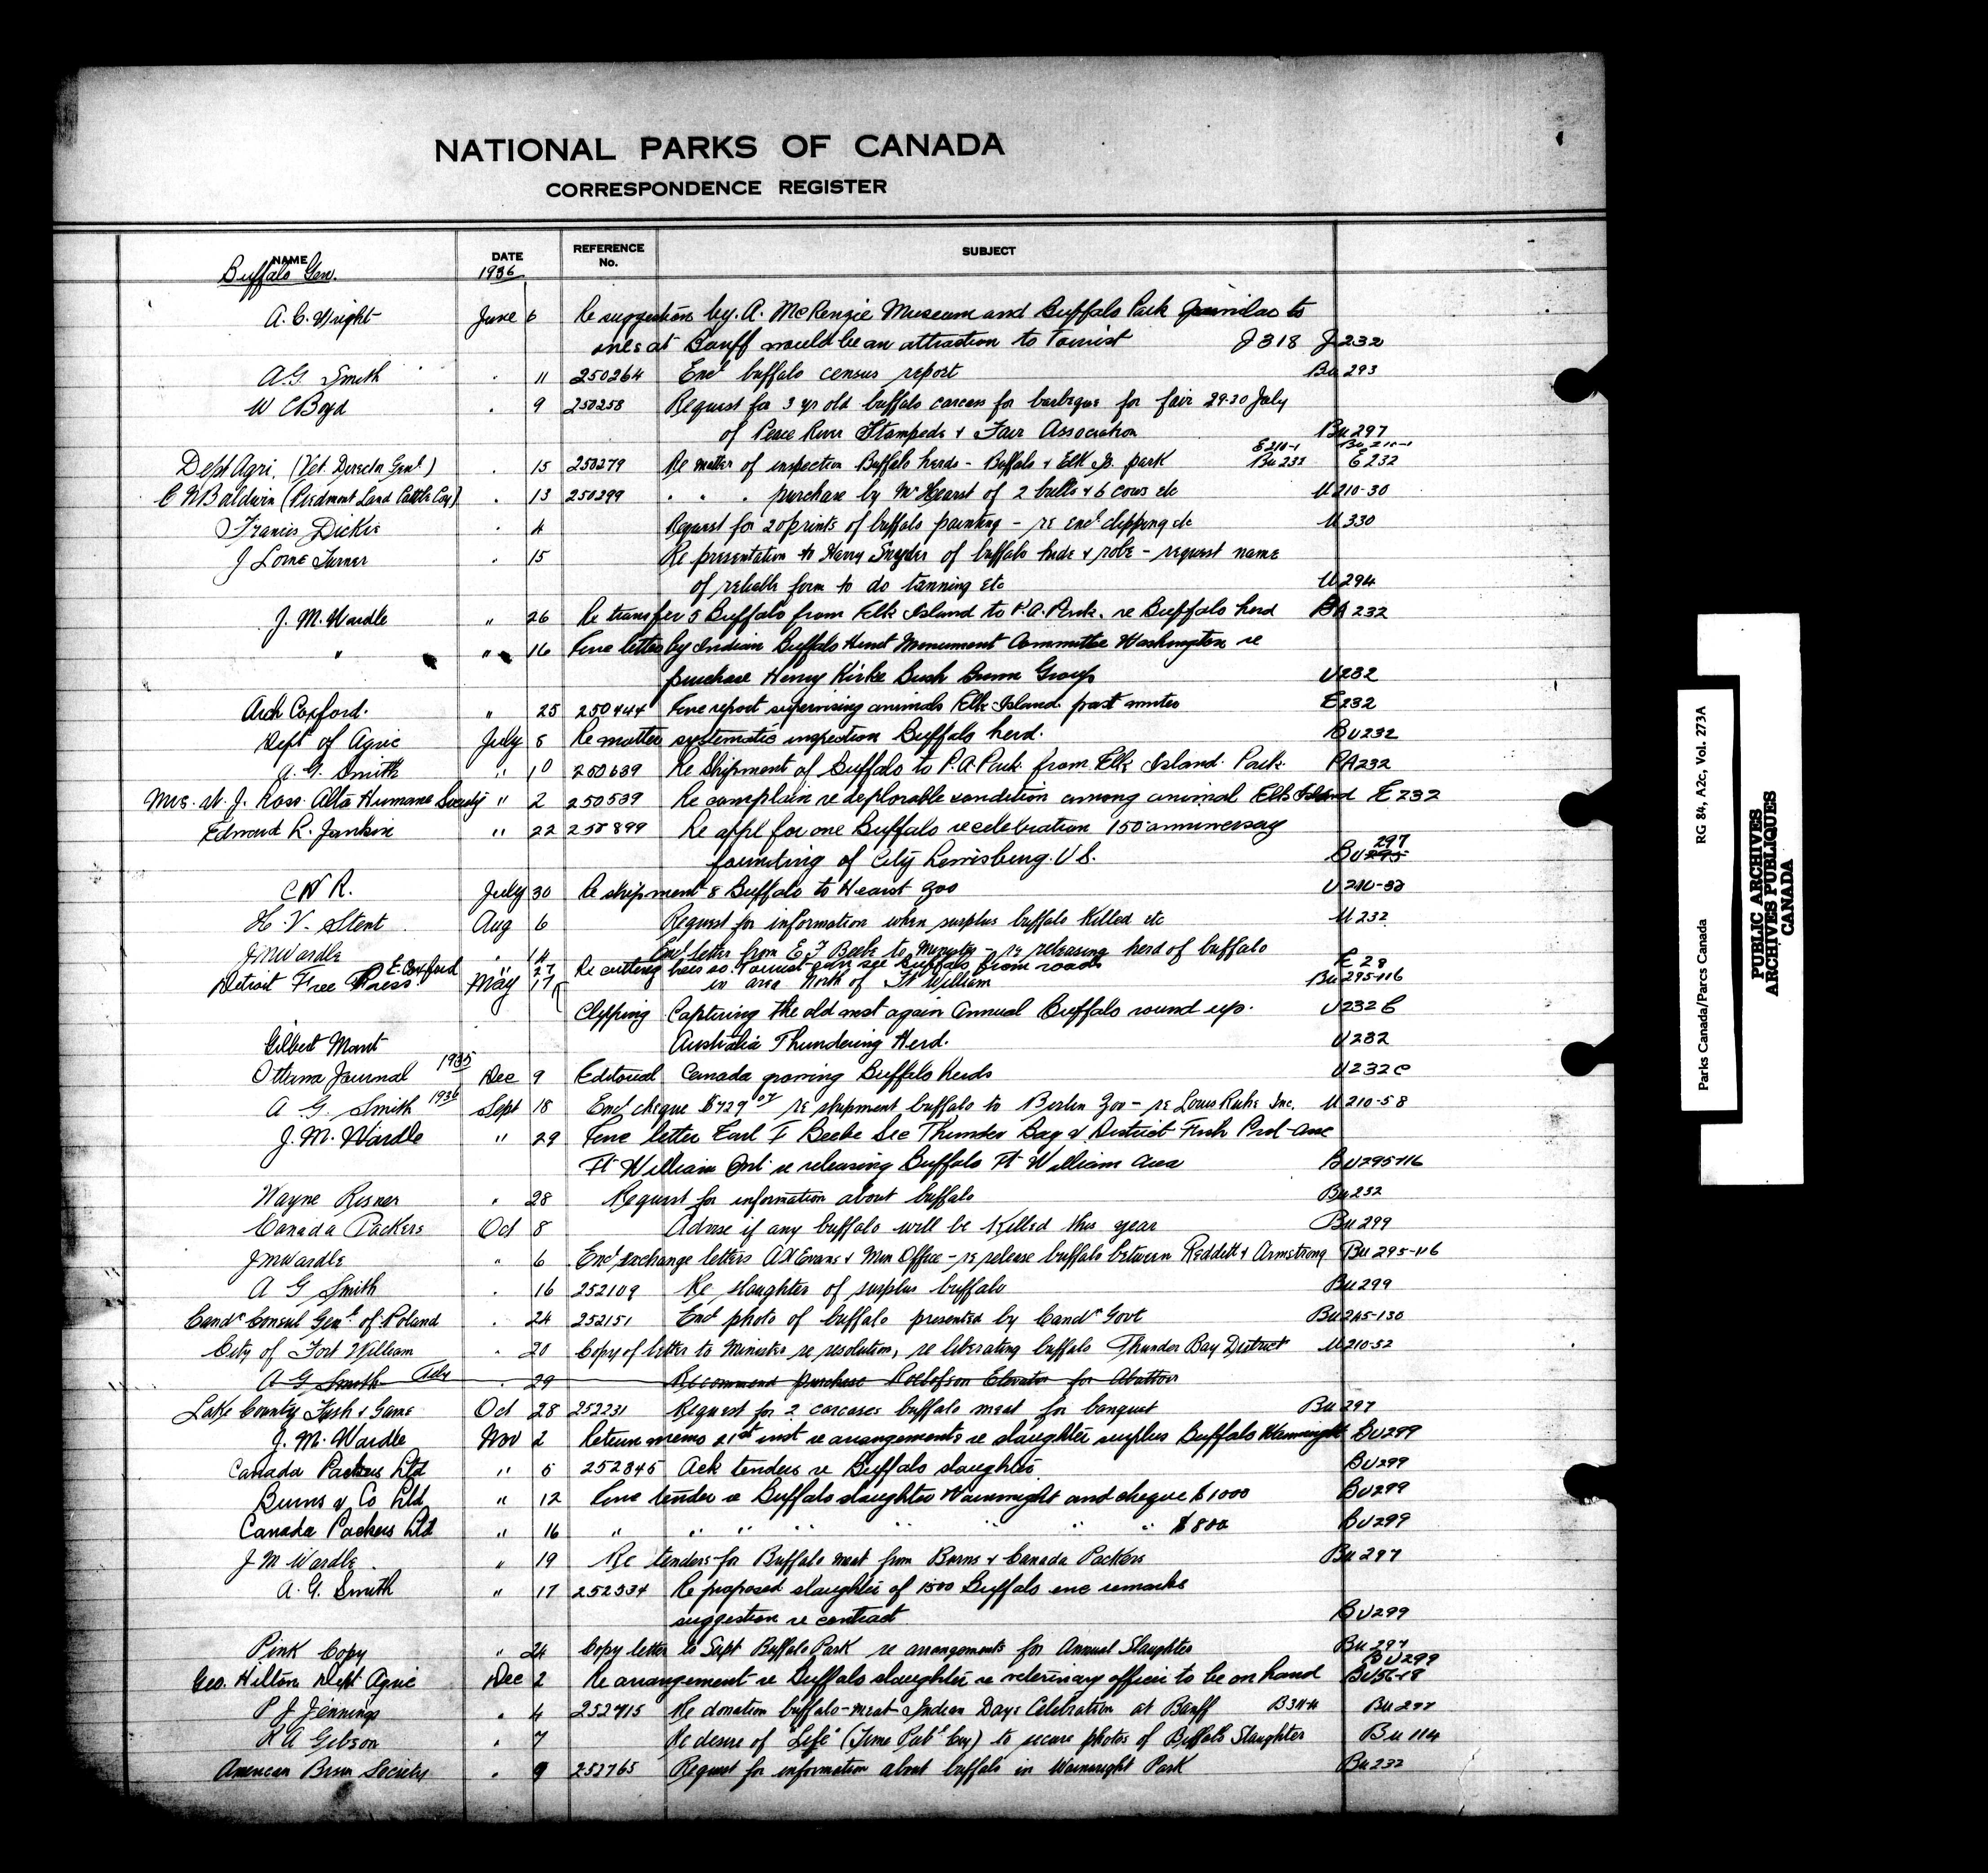 NATIONAL PARKS OF CANADA
CORRESPONDENCE REGISTER
NAME DATE REFERENCE No. SUBJECT
Buffalo Gen. 1936
A. C. Wright June 6 Re suggestion by A. McKenzie Museum and Buffalo Park similar to
ones at Banff would be an attraction to Tourist J318 J232
A.G. Smith . 11 250264 Encl buffalo census report Bu 293
W C Boyd . 9 250258 Request for 3 yr old buffalo carcass for barbeque for fair 29-30 July
of Peace River Stampede & Fair Association Bu 297
E210-1 Bu 210-1
Dept Agri. (Vet. Director Genl.) . 15 250279 Re matter of inspection Buffalo herds - Buffalo & Elk Is. park Bu 232 E 232
C N Baldwin (Piedmont Land Cattle Coy) . 13 250299 . . . purchase by Mr Hearst of 2 bulls & 6 cows etc U 210-30
Francis Dickie . 4 Request for 20 prints of buffalo painting - re encl clipping etc U 330
J Lorne Turner . 15 Re presentation to Harry Snyder of buffalo hide & robe - request name
of reliable firm to do tanning etc U 294
J. M. Wardle " 26 Re transfer 5 Buffalo from Elk Island to P.A. Park. re Buffalo herd PA 232
" " 16 Enc letter by Indian Buffalo Hunt Monument Committee Washington re
purchase Henry Kirke Bush Group U232
Arch Coxford. " 25 250444 Enc report supervising animals Elk Island past E232
Dept of Agric July 8 Re matter systematic inspection Buffalo herd. BU232
A. G. Smith " 10 250639 Re Shipment of Buffalo to P.A. Park from Elk Island Park PA232
Mrs. W. J. Ross. Alta Humane Society " 2 250539 Re complain re deplorable condition among animal Elk Island E232
Edward R. Jankin " 22 250899 Re appl for one Buffalo re celebration 150 anniversary
297
founding of City Lewisburg. U S. BU295
C N R. July 30 Re shipment 8 Buffalo to Hearst Zoo U 210-30
H. V. Stent Aug 6 Request for information when surplus buffalo killed etc U 232
J M Wardle . 14 Encl letter from E. F Beebe to Minister - re releasing herd of buffalo
E. Coxford " 27 Re cutting trees so Tourist can see buffalo from roads E 28
Detroit Free Press. May 17 in area North of Ft William Bu 295-116
Clipping Capturing the old again Annual Buffalo round up. U232 C
Gilbert Mant Australia Thundering Herd. U232
Ottawa Journal 1935 Dec 9 Editorial Canada growing Buffalo herds U232 C
A G. Smith 1936 Sept 18 Encl cheque $729 07 re shipment buffalo to Berlin Zoo - re Louis Ruhe Inc. U 210-58
J. M. Wardle " 29 Enc letter Earl F Beebe Sec Thunder Bay & District Fish Prot-Ass
Ft William Ont re releasing Buffalo Ft William area BU295-116
Wayne Risner . 28 Request for information about buffalo Bu 232
Canada Packers Oct 8 Advise if any buffalo will be killed this year Bu 299
J M Wardle . 6 Encl exchange letters A X Evans & Min Office - re release buffalo between Redditt & Armstrong Bu 295-116
A G Smith . 16 252109 Re slaughter of surplus buffalo Bu 299
Candn Consul Genl of Poland . 24 252151 Encl photo of buffalo presented by Candn Govt Bu 245-130
City of Fort William . 20 Copy of letter to Minister re resolution, re liberating buffalo Thunder Bay District U 210-52
A G Smith . 29 Recommend purchase Elevator for Abattoir
Lake County Fish & Game Oct 28 252231 Request for 2 carcases buffalo meat for banquet Bu 297
J. M. Wardle Nov 2 Return memo 21st inst re arrangements re slaughter surplus Buffalo Wainwright BU299
Canada Packers Ltd " 5 252345 Ack tenders re Buffalo slaughter BU299
Burns & Co Ltd " 12 Enc tender re Buffalo slaughter Wainwright and cheque $1000 BU299
Canada Packers Ltd " 16 " " " " " " " " $800 BU299
J M Wardle " 19 Re tenders for Buffalo meat from Burns & Canada Packers Bu 297
A. G. Smith " 17 252534 Re proposed slaughter of 1500 Buffalo enc remarks
suggestion re contract BU299
Pink Copy " 24 Copy letter to Supt Buffalo Park re arrangements for Annual Slaughter Bu 297
BU299
Geo. Hilton Dept Agric Dec 2 Re arrangement re Buffalo slaughter re veterinary officer to be on hand BU56-18
P J Jennings . 4 252715 Re donation buffalo-meat Indian Days Celebration at Banff Bu 297
R A Gibson . 7 Re desire of "Life" (Time Publ Coy) to secure photos of Buffalo Slaughter Bu 114
American Bison Society . 9 252765 Request for information about buffalo in Wainwright Park Bu 232
Parks Canada/Parcs Canada RG 84, A2c, Vol. 273A
PUBLIC ARCHIVES
ARCHIVES PUBLIQUES
CANADA